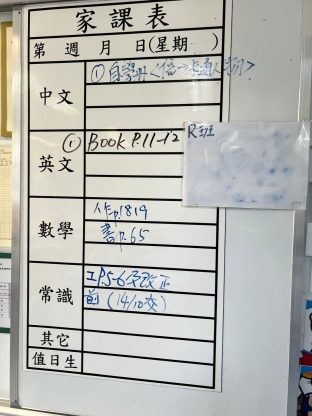 家課表
第 週 月 日(星期 )
中文
① 自學冊<第一卡通人物>
英文
① BOOK P.11-12
R班
數學
作p.18 19
書p.65
常識
工P.5-6及改正
前 (14/10交)
其它
值日生